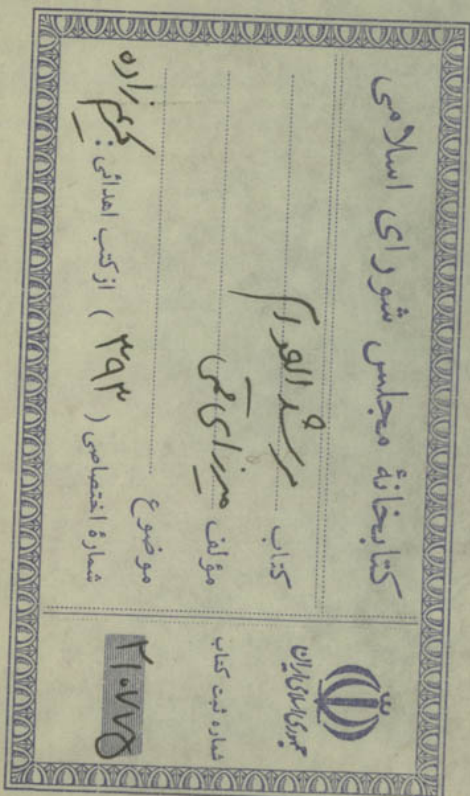 کتابخانهٔ مجلس شورای اسلامی
کتاب مرشد العوام
مؤلف میرزای قمی
موضوع
شمارهٔ اختصاصی ( ۳۹۳ ) از کتب اهدائی : کریم زاده
جمهوری اسلامی ایران
شماره ثبت کتاب
۲۱۰۷۷۵